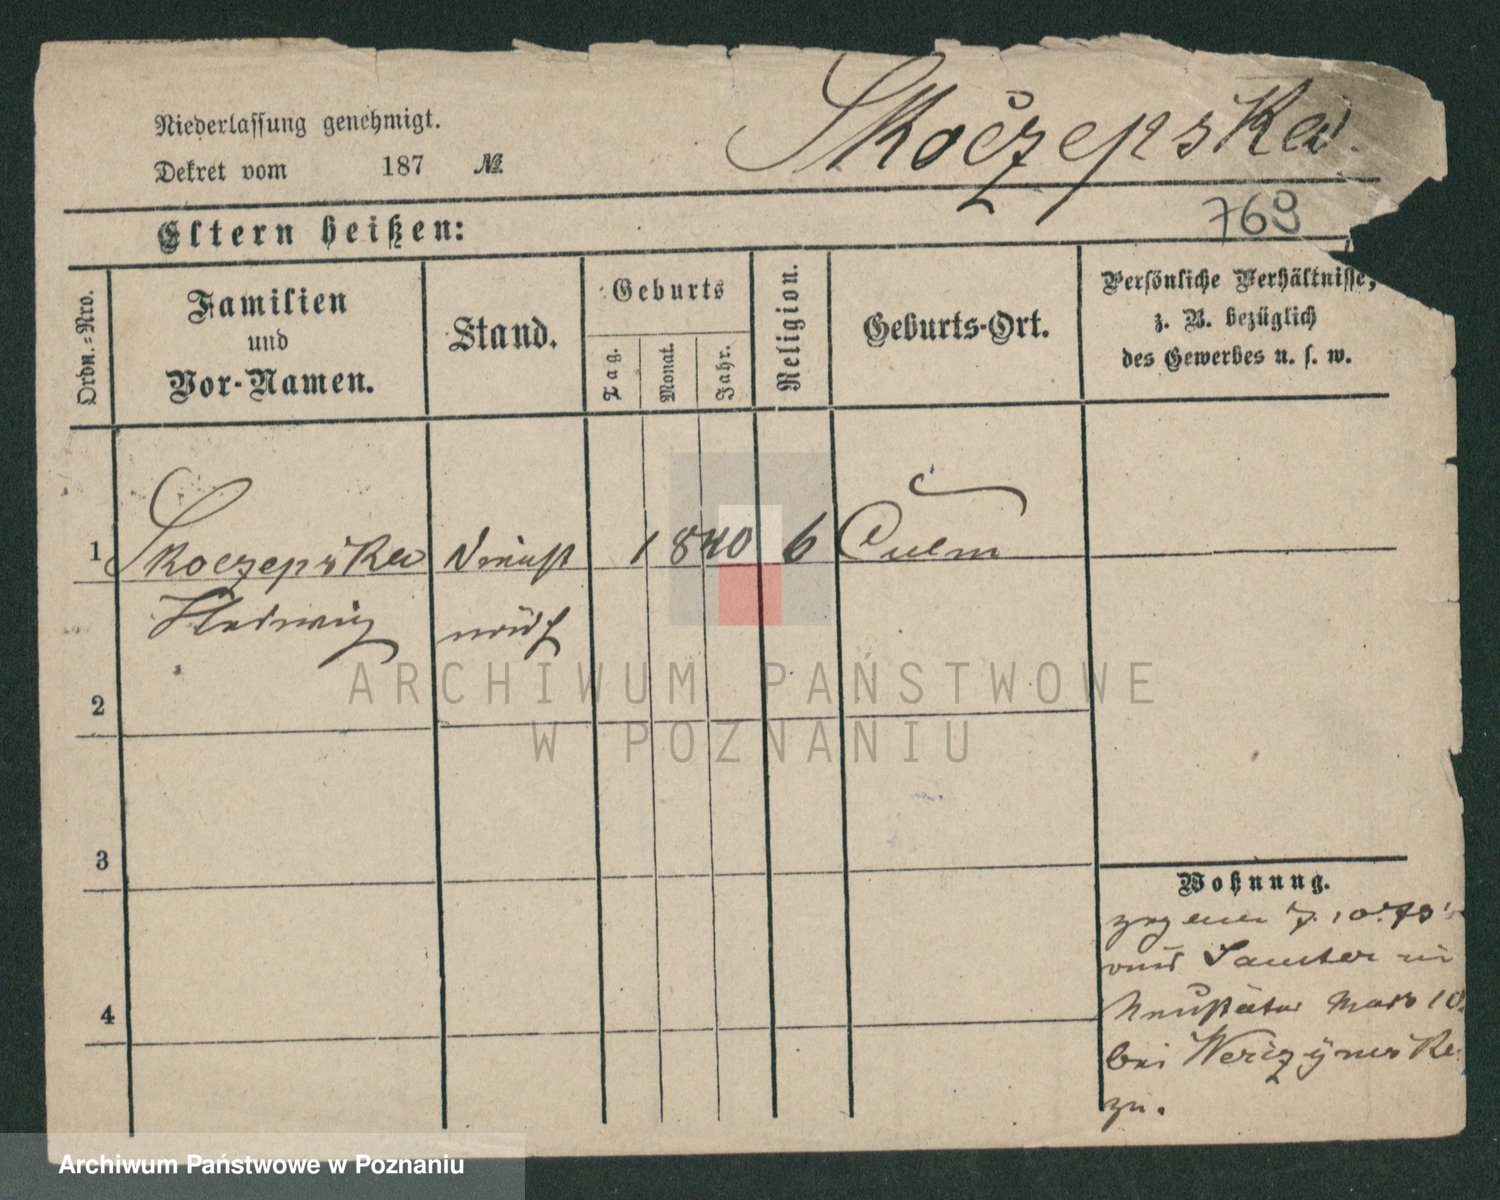 Skoczepska
Niederlassung genehmigt.
Dekret vom 187 №
769
Eltern heißen:
Ordn.=Nro.
Familien
und
Vor-Namen.
Stand.
Geburts
Tag.
Monat.
Jahr.
Religion.
Geburts-Ort.
Persönliche Verhältnisse,
z. B. bezüglich
des Gewerbes u. s. w.
1 Skoczepska Dienst 1840 6 Culm
Hedwig
2
3
4
Wohnung.
zog am 7. 10. 73
von Samter in
Neustädter Markt 10
bei
zu.
ARCHIWUM PAŃSTWOWE
W POZNANIU
Archiwum Państwowe w Poznaniu